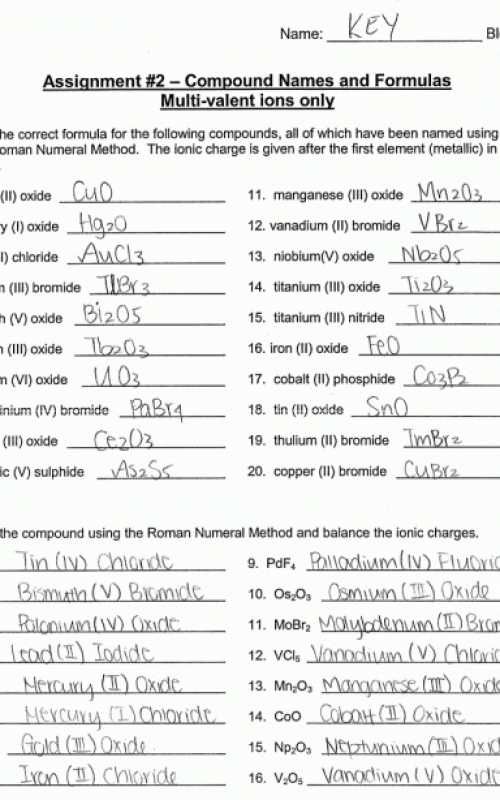 Name: KEY Bl
Assignment #2 – Compound Names and Formulas
Multi-valent ions only
he correct formula for the following compounds, all of which have been named using
oman Numeral Method. The ionic charge is given after the first element (metallic) in
(II) oxide CuO 11. manganese (III) oxide Mn2O3
y (I) oxide Hg2O 12. vanadium (II) bromide VBr2
I) chloride AuCl3 13. niobium(V) oxide Nb2O5
n (III) bromide TlBr3 14. titanium (III) oxide Ti2O3
h (V) oxide Bi2O5 15. titanium (III) nitride TiN
n (III) oxide Tb2O3 16. iron (II) oxide FeO
m (VI) oxide UO3 17. cobalt (II) phosphide Co3P2
inium (IV) bromide PaBr4 18. tin (II) oxide SnO
(III) oxide Ce2O3 19. thulium (II) bromide TmBr2
ic (V) sulphide As2S5 20. copper (II) bromide CuBr2
the compound using the Roman Numeral Method and balance the ionic charges.
Tin (IV) Chloride 9. PdF4 Palladium (IV) Fluorid
Bismuth (V) Bromide 10. Os2O3 Osmium (III) Oxide
Polonium (IV) Oxide 11. MoBr2 Molybdenum (II) Brom
Lead (II) Iodide 12. VCl5 Vanadium (V) Chlorid
Mercury (II) Oxide 13. Mn2O3 Manganese (III) Oxide
Mercury (I) Chloride 14. CoO Cobalt (II) Oxide
Gold (III) Oxide 15. Np2O3 Neptunium (III) Oxid
Iron (II) Chloride 16. V2O5 Vanadium (V) Oxide